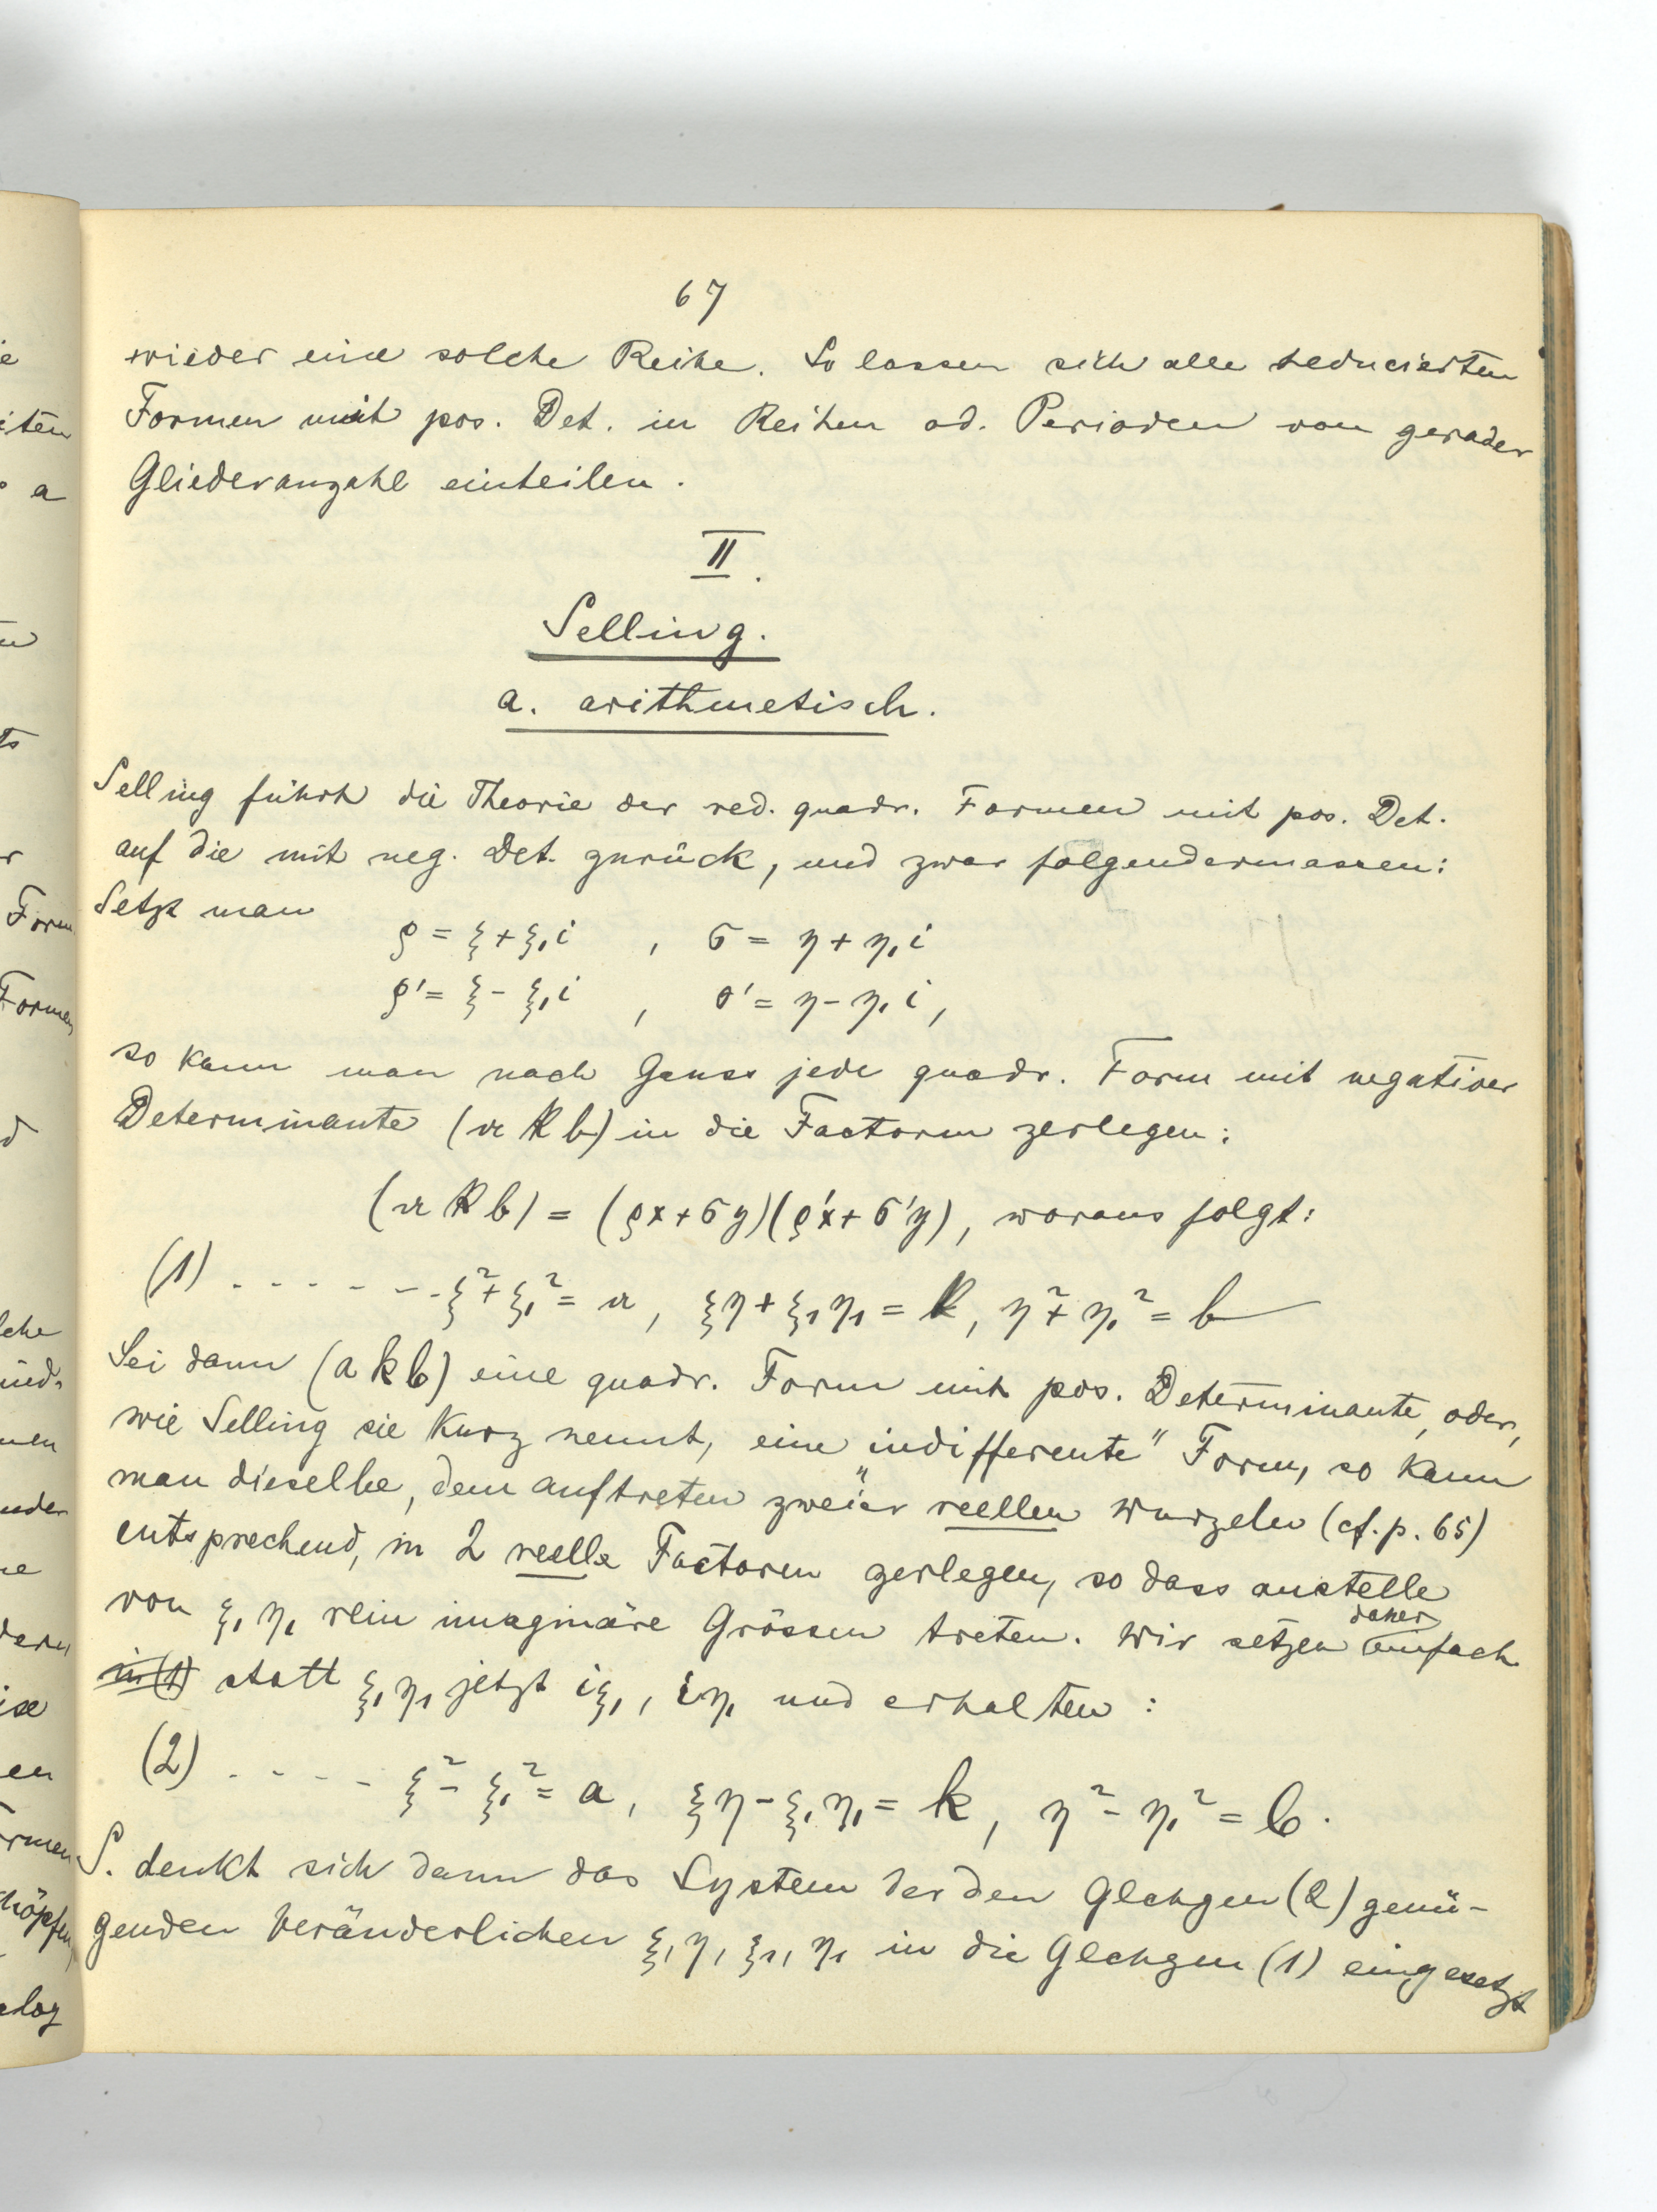 67
wieder eine solche Reihe. So lassen sich alle reducierten
Formen mit pos. Det. in Reihen od. Perioden von gerader
Gliederanzahl einteilen.
II.
Selling.
a. arithmetisch.
Selling führt die Theorie der red. quadr. Formen mit pos. Det.
auf die mit neg. Det. zurück, und zwar folgendermassen:
Setzt man
ρ = ξ + ξ₁i , σ = η + η₁i
ρ' = ξ - ξ₁i , σ' = η - η₁i,
so kann man nach Gauss jede quadr. Form mit negativer
Determinante (𝔞 𝔨 𝔟) in die Factoren zerlegen:
(𝔞 𝔨 𝔟) = (ρx + σy)(ρ'x + σ'y), woraus folgt:
(1) - - - - - - ξ² + ξ₁² = 𝔞, ξη + ξ₁η₁ = 𝔨, η² + η₁² = 𝔟
Sei dann (a k b) eine quadr. Form mit pos. Determinante, oder,
wie Selling sie kurz nennt, eine „indifferente" Form, so kann
man dieselbe, dem auftreten zweier reellen Wurzeln (cf. p. 65)
entsprechend, in 2 reelle Factoren zerlegen, so dass anstelle
von ξ₁ η₁ rein imaginäre Grössen treten. Wir setzen daher einfach
in (1) statt ξ₁ η₁ jetzt iξ₁, iη₁ und erhalten:
(2) - - - - - ξ² - ξ₁² = a, ξη - ξ₁η₁ = k, η² - η₁² = b.
S. denkt sich dann das System der den Glchgen (2) genü-
genden Veränderlichen ξ, η, ξ₁, η₁ in die Glchgen (1) eingesetzt